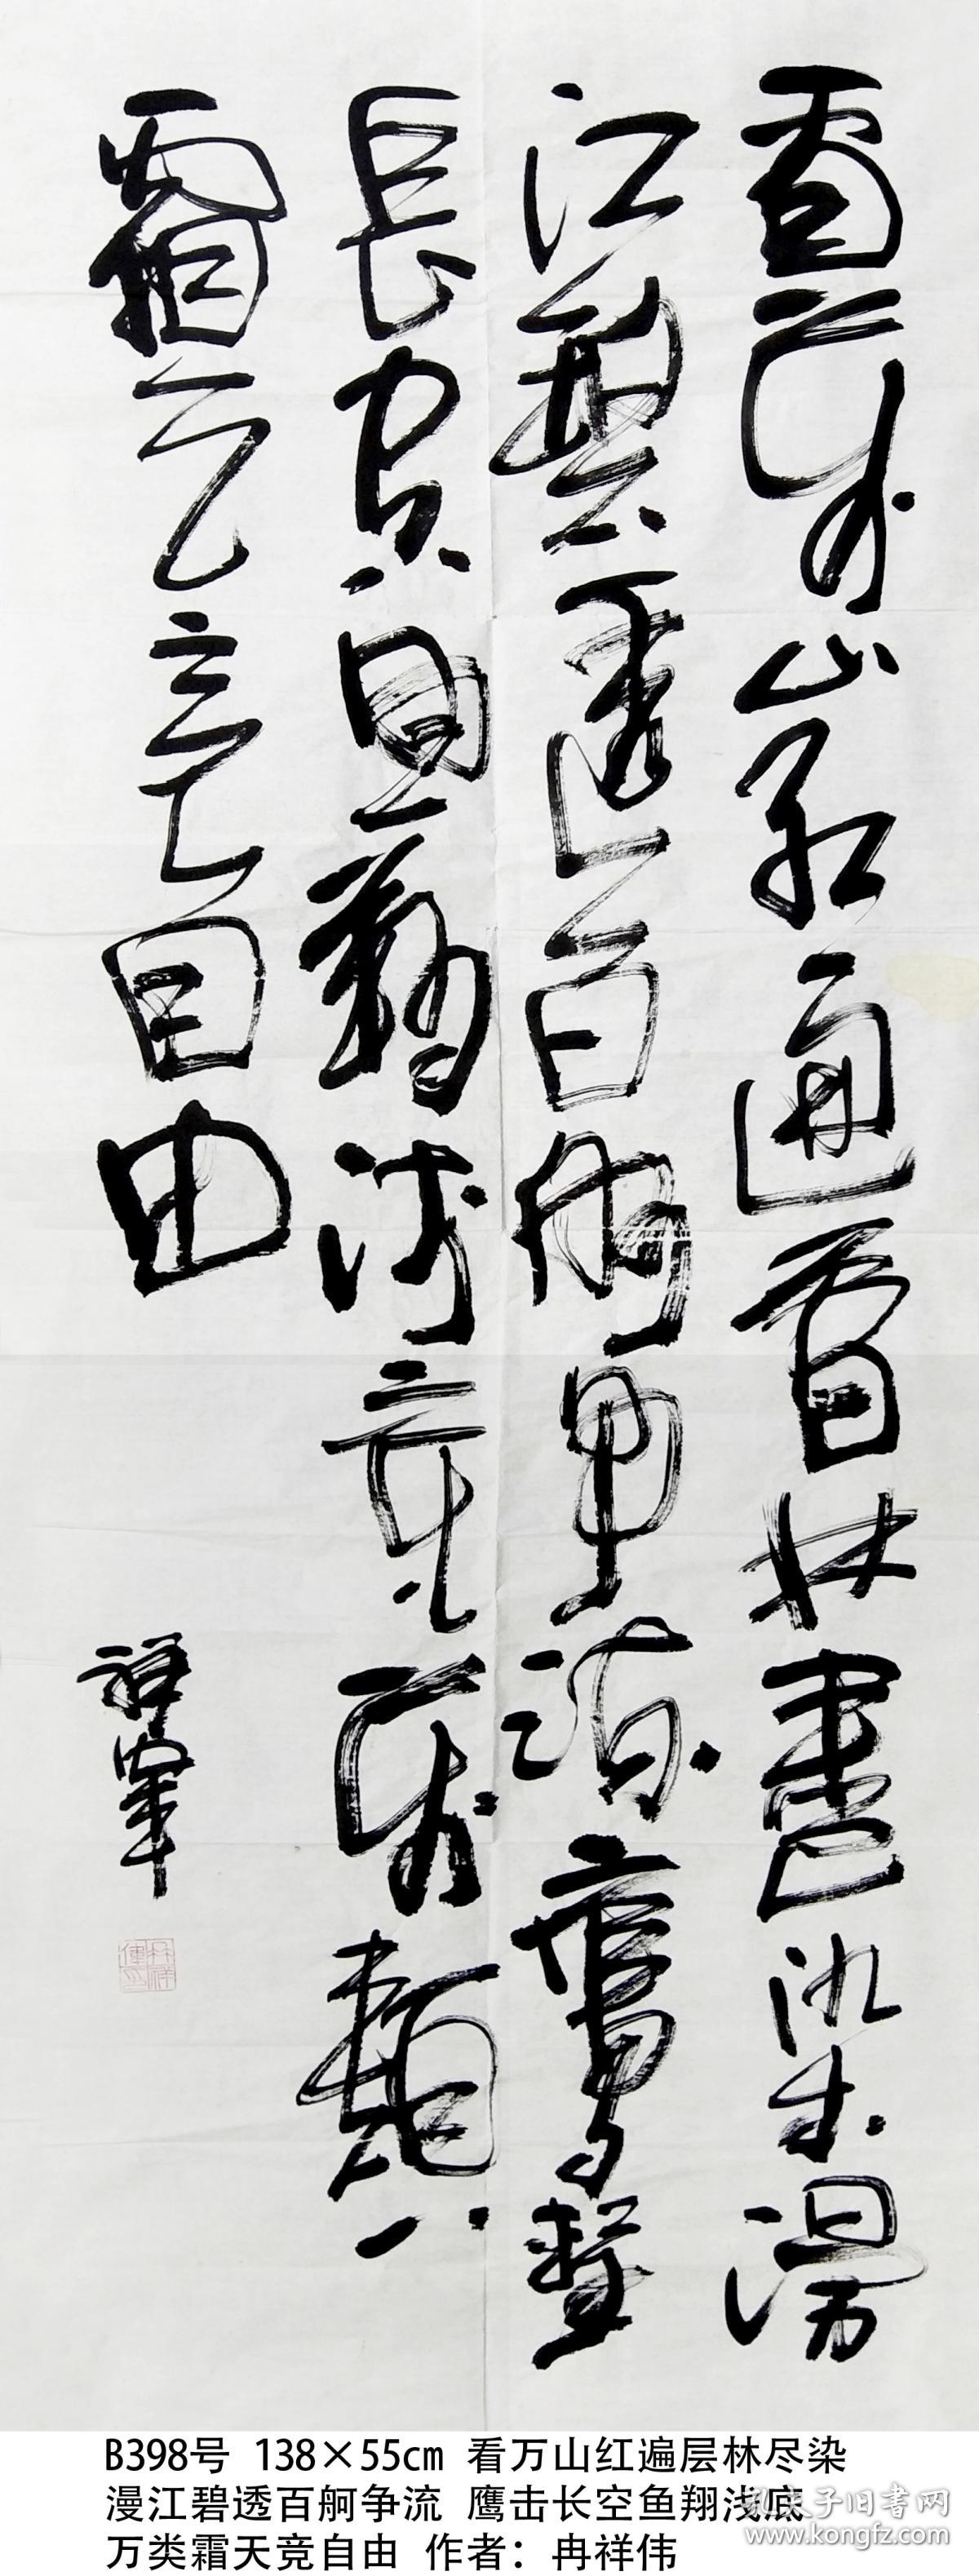 看萬山紅遍層林盡染漫
江碧透百舸爭流鷹擊
長空魚翔淺底萬類
霜天競自由
祥偉
B398号 138×55cm 看万山红遍层林尽染
漫江碧透百舸争流 鹰击长空鱼翔浅底
万类霜天竞自由 作者：冉祥伟
孔夫子旧书网
www.kongfz.com